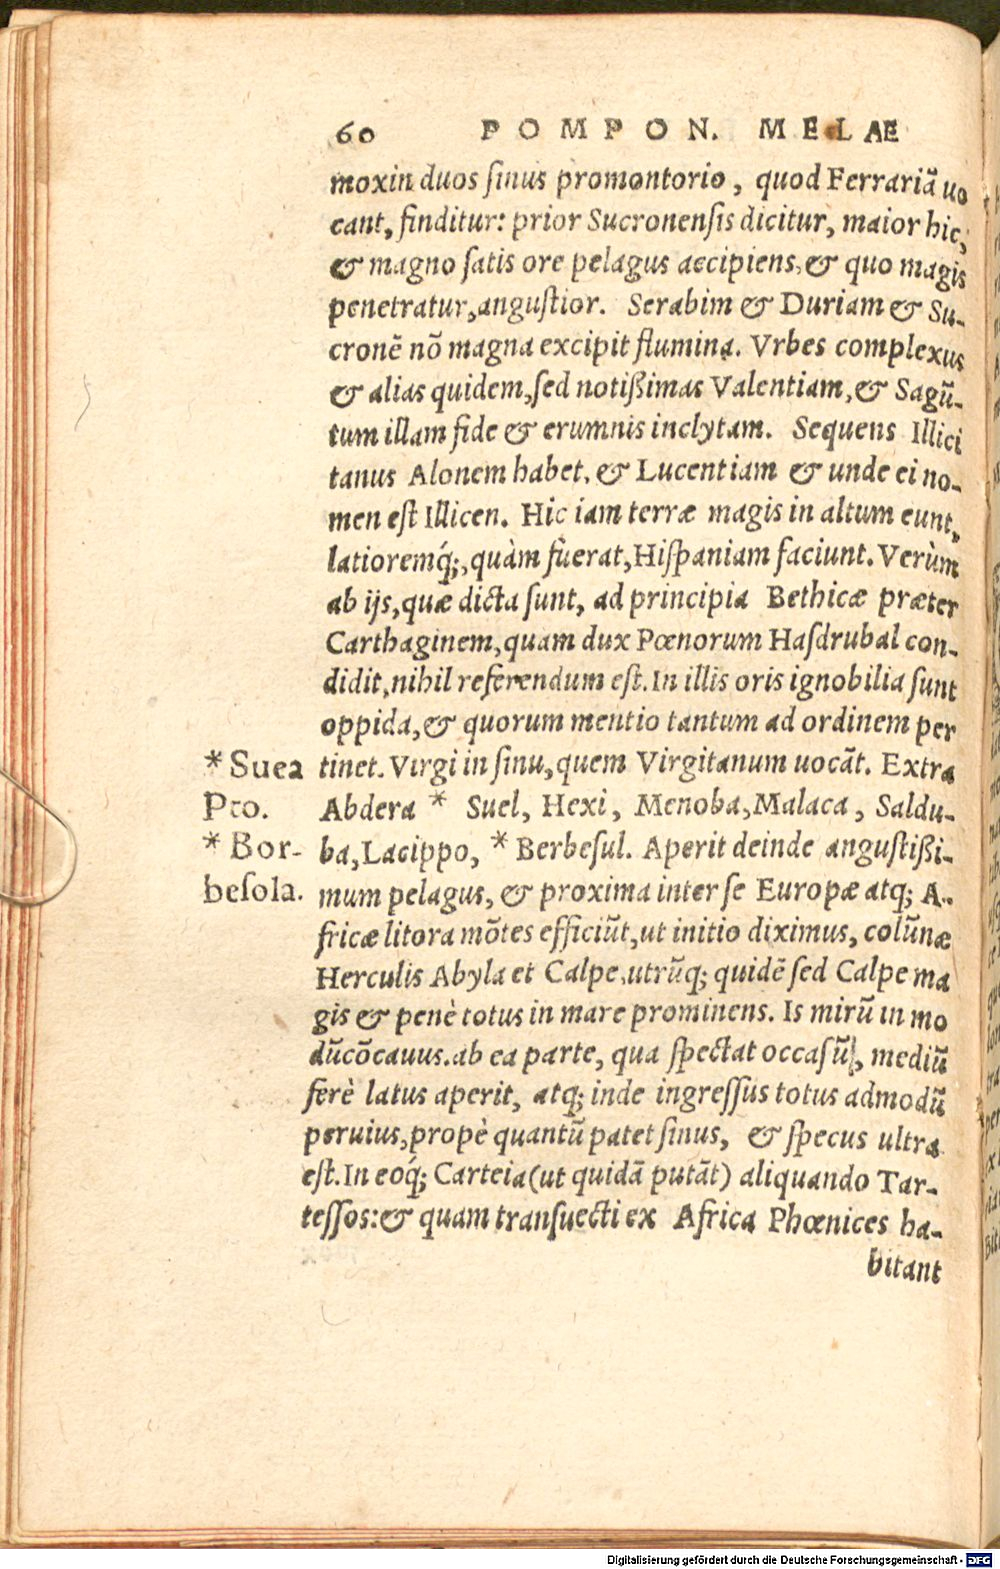 60 POMPON. MELAE
mox in duos ſinus promontorio, quod Ferrariã uo
cant, finditur: prior Sucronenſis dicitur, maior hic,
& magno ſatis ore pelagus accipiens, & quo magis
penetratur, anguſtior. Serabim & Duriam & Su-
cronē nõ magna excipit flumina. Vrbes complexus
& alias quidem, ſed notißimas Valentiam, & Sagũ-
tum illam fide & erumnis inclytam. Sequens Illici
tanus Alonem habet, & Lucentiam & unde ei no-
men eſt Illicen. Hic iam terræ magis in altum eunt,
latioremq́;, quàm fuerat, Hiſpaniam faciunt. Verùm
ab ijs, quæ dicta ſunt, ad principia Bethicæ præter
Carthaginem, quam dux Pœnorum Haſdrubal con-
didit, nihil referendum eſt. In illis oris ignobilia ſunt
oppida, & quorum mentio tantum ad ordinem per
* Suea tinet. Virgi in ſinu, quem Virgitanum uocãt. Extra
Pto. Abdera * Suel, Hexi, Menoba, Malaca, Saldu-
* Bor- ba, Lacippo, * Berbeſul. Aperit deinde anguſtißi-
beſola. mum pelagus, & proxima inter ſe Europæ atq; A-
fricæ litora mõtes efficiũt, ut initio diximus, colũnæ
Herculis Abyla et Calpe, utrũq; quidē ſed Calpe ma
gis & penè totus in mare prominens. Is mirũ in mo
dũ cõcauus. ab ea parte, qua ſpectat occaſũ, mediũ
ferè latus aperit, atq; inde ingreſſus totus admodũ
peruius, propè quantũ patet ſinus, & ſpecus ultra
eſt. In eoq́; Carteia (ut quidã putãt) aliquando Tar-
teſſos: & quam tranſuecti ex Africa Phœnices ha-
bitant
Digitalisierung gefördert durch die Deutsche Forschungsgemeinschaft - DFG